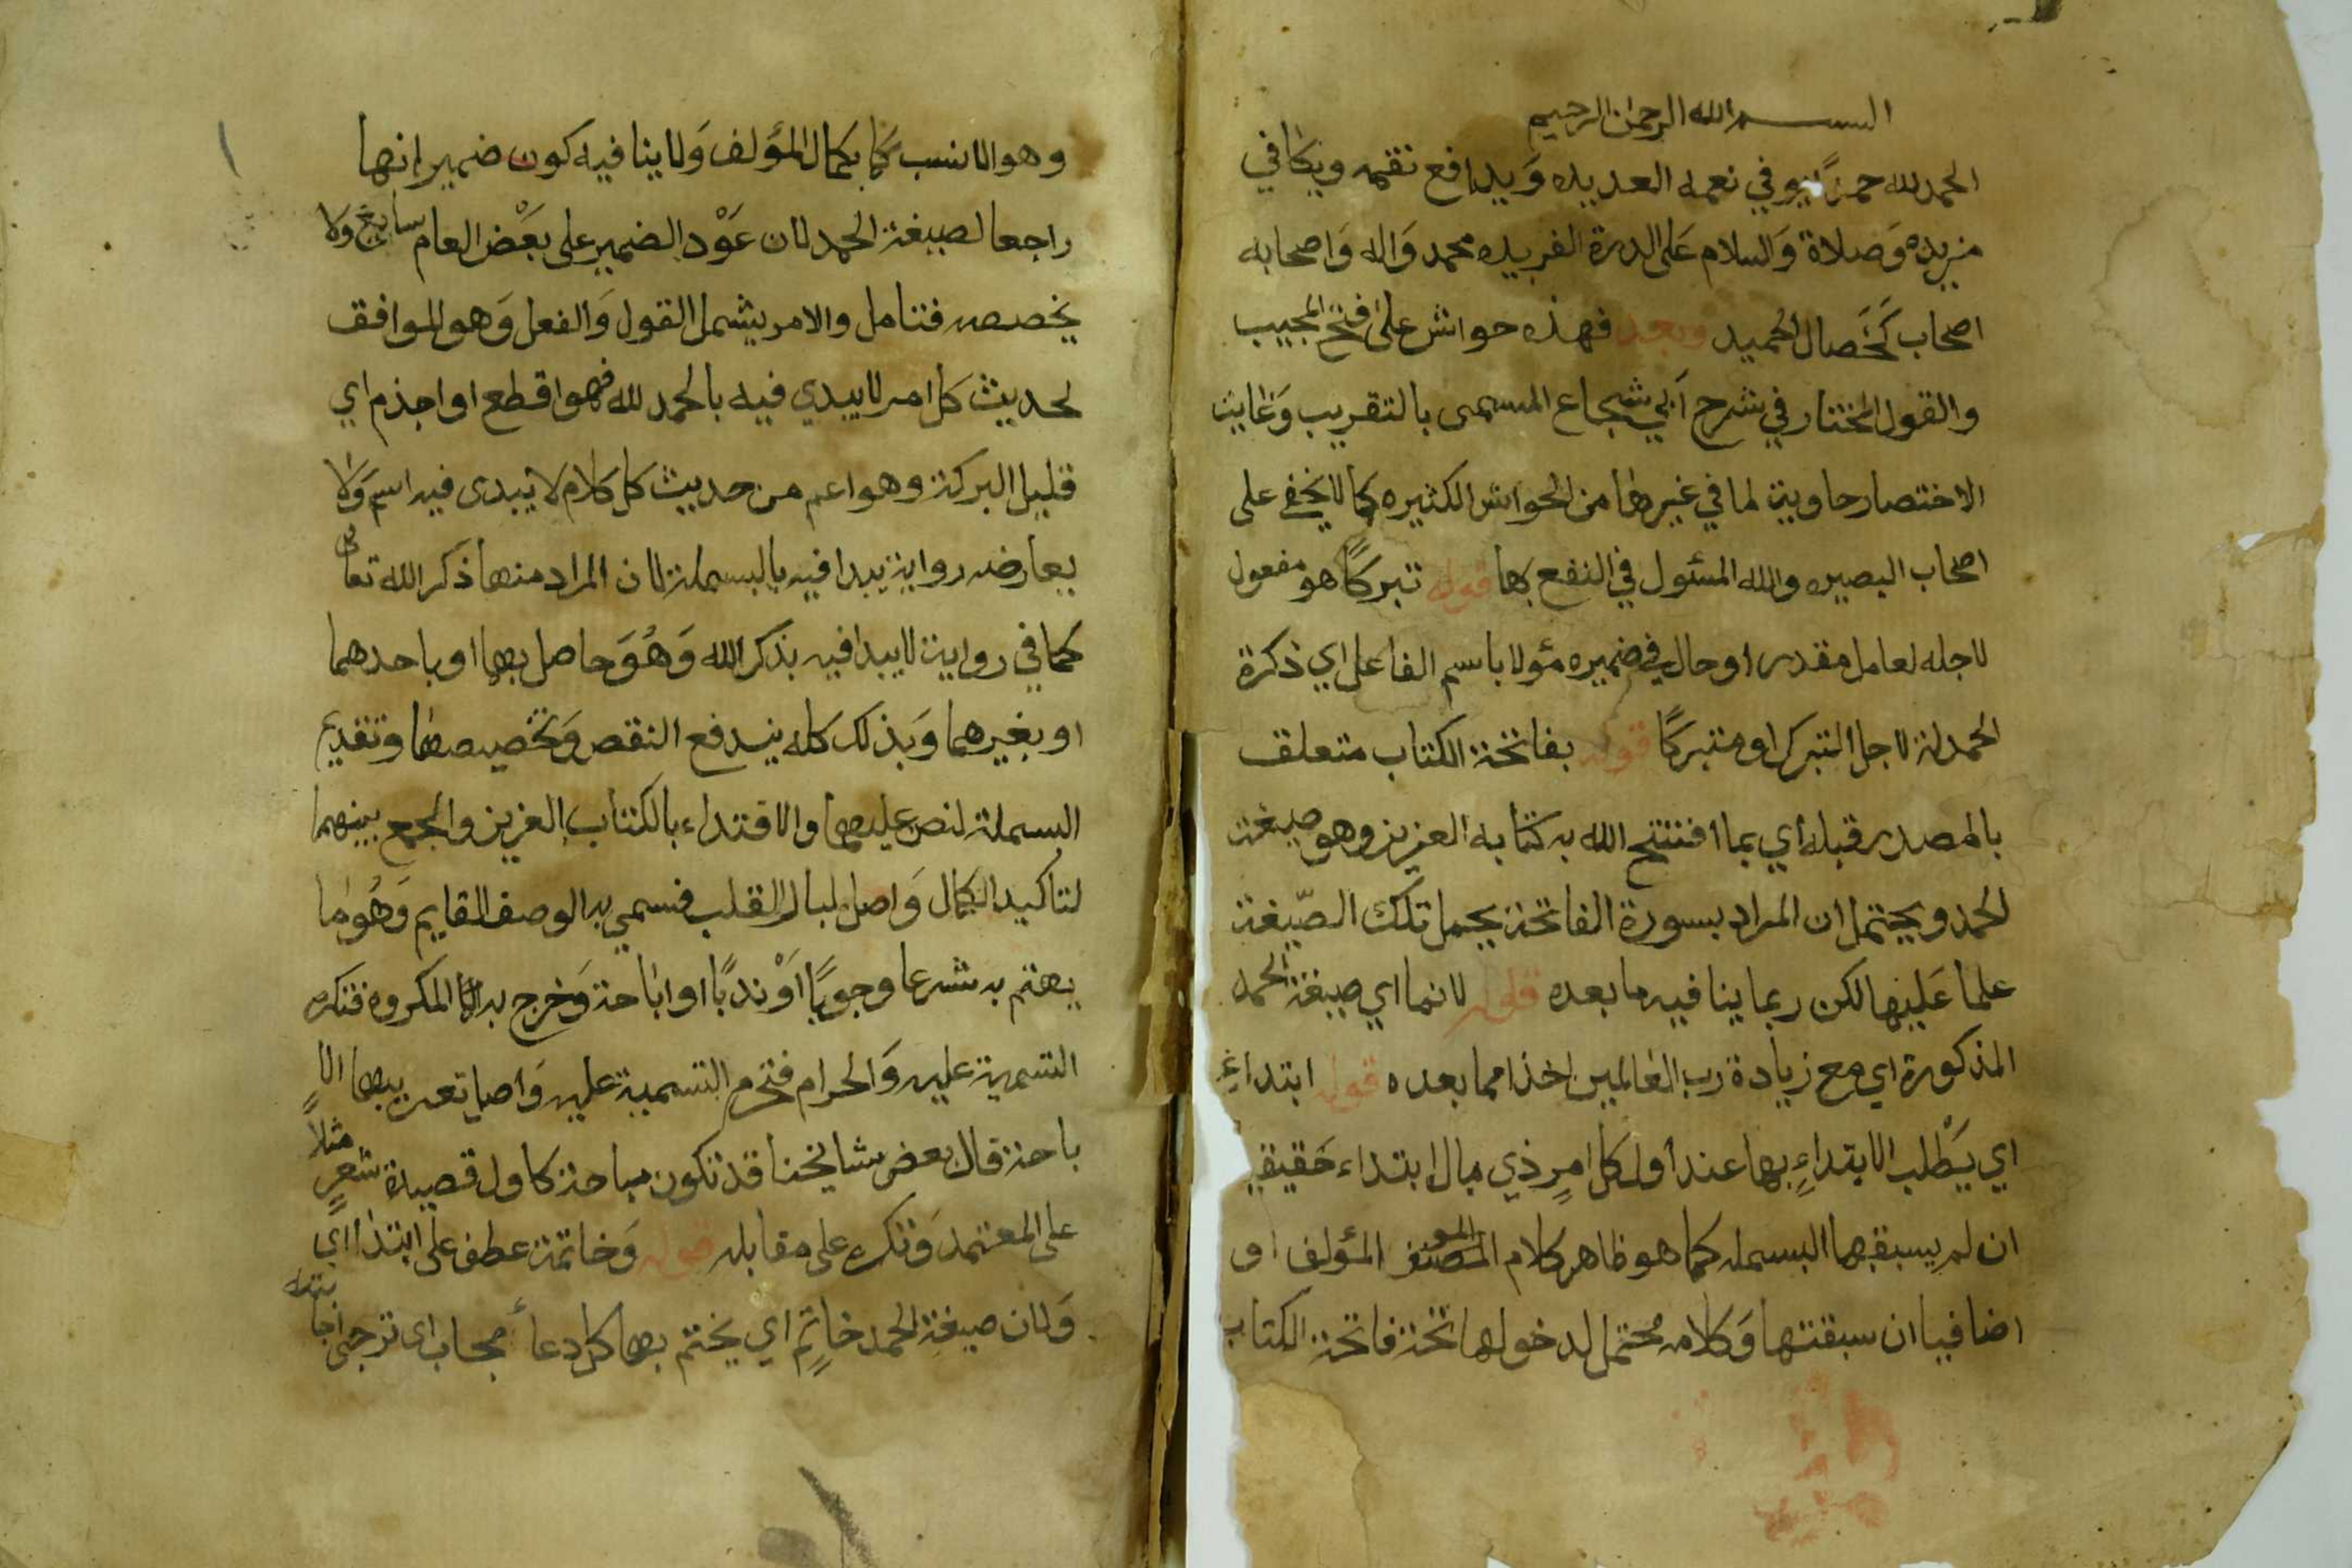 البسم الله الرحمن الرحيم
الحمد لله حمدًا يوفي نعمه العديده وَيدافع نقمه ويكافي
مزيده وَصلاة وَالسلام عَلى الدرة الفريده محمد وَاله وَاصحابه
اصحاب الخَصال الحميد وبعد فهذه حواش على فتح المجيب
والقول المختار في شرح اَبي شجاع المسمى بالتقريب وَغاية
الاختصار حاوية لما في غيرها من الحواش الكثيره كما لا يخفى على
اصحاب البصيره والله المسئول في النفع بها قوله تبركًا هو مفعول
لاجله لعامل مقدر او حال في ضميره مؤولا باسم الفاعل اي ذكرة
الحمدلة لاجل التبرك او متبركًا قوله بفاتحة الكتاب متعلق
بالمصدر قبله اي بما افتتح الله به كتابه العزيز وهو صيغة
الحمد ويحتمل ان المراد بسورة الفاتحة بجمل تلك الصّيغة
علما عَليها لكن ربما ينافيه ما بعده قوله لانها اي صيغة الحمد
المذكورة اي مع زيادة رب العالمين اخذا مما بعده قوله ابتداءِ
اي يَطْلب الابتداءِ بها عند اول كل امرٍ ذي بال ابتداء حَقيقي
ان لم يسبقها البسمله كما هو ظاهر كلام المصنف المؤلف او
اضافيا ان سبقتها وَكلامه محتمل لدخولها تحت فاتحة الكتاب
وهو الانسب بكمال المؤلف وَلا ينافيه كون ضمير انها
راجعا لصيغة الحمد لان عَوْد الضمير على بَعْض العام سايغ وَلا
يخصصه فتامل والامر يشمل القول وَالفعل وَهو الموافق
لحديث كل امر لا يبدي فيه بالحمد لله فهو اقطع او اجذم اي
قليل البركة وهو اعم من حديث كل كلام لا يبدى فيه اسم وَلا
يعارضه رواية يبدا فيه بالبسملة لان المراد منها ذكر الله تعالى
كما في رواية لا يبدا فيه بذكر الله وَهُوَ حاصل بهما او باحدهما
او بغيرهما وَبذلك كله يندفع النقص وَتخصيصهما وتقديم
البسملة لنص عليهما والاقتداء بالكتاب العزيز والجمع بينهما
لتاكيد الكمال وَاصل لبال القلب فسمي به الوصف القايم وَهُو ما
يهتم به شرعا وجوبًا اَوْ ندبًا او اباحة وَخرج به المكروه فتكره
التسمية عليه وَالحرام فتحرم التسمية عليه وَاصل تعريبها الا
باحة قال بعض مشايخنا قد تكون مباحة كاول قصيدة شعرٍ مثلاً
على المعتمد وَتكره على مقابله قوله وَخاتمة عطف على ابتداءً اي
وَلان صيغة الحمد خاتِم اي يختم بها كل دعاءٍ مجاب اى ترجى اجابته